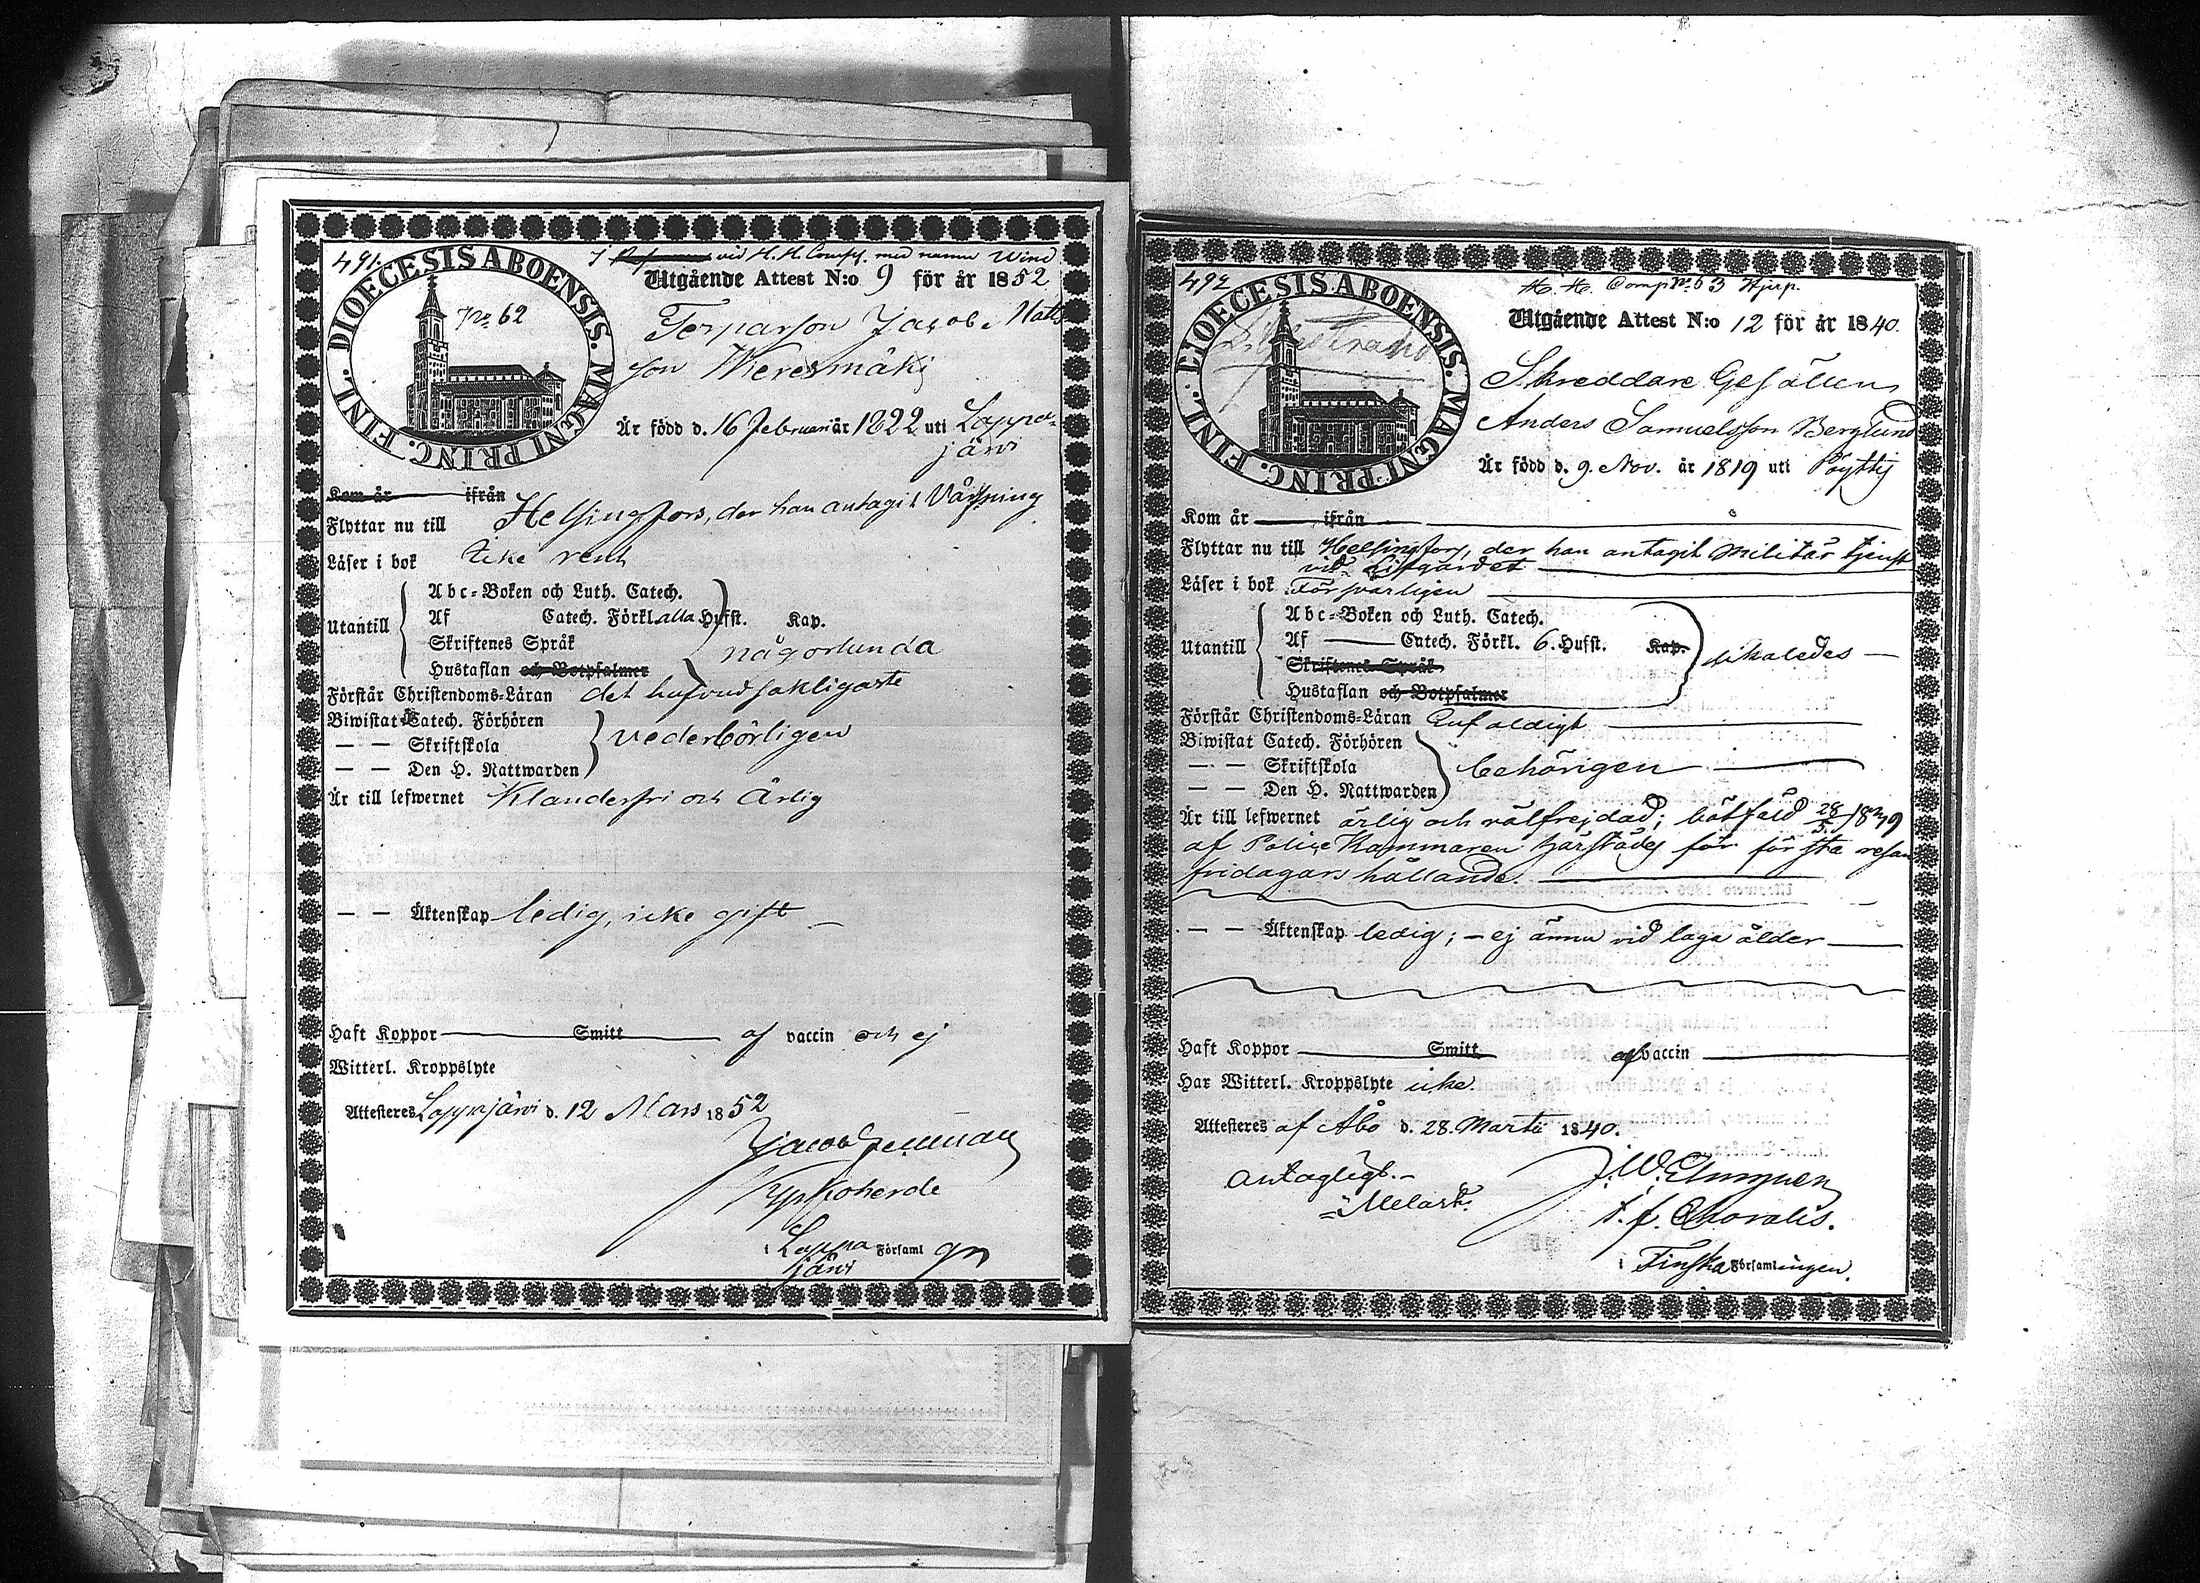 491.
vid H. H. Comp. med namn Wind
DIOECESIS ABOENSIS. MAGNI PRINC. FINL.
No. 62
Utgående Attest N:o 9 för år 1852
Torparson Jacob Matts
son Wieresmäki
Är född d. 16 Februari år 1822 uti Lappa-
järvi
Kom år ifrån
Flyttar nu till Helsingfors, der han antagit Värfning
Läser i bok icke rent
Abc-Boken och Luth. Catech.
Utantill Af Catech. Förkl. alla Hufst. Kap.
Skriftenes Språk någorlunda
Hustaflan och Botpsalmer
Förstår Christendoms-Läran det hufvudsakligaste
Biwistat Catech. Förhören
— — Skriftskola vederbörligen
— — Den H. Nattwarden
Är till lefwernet Klanderfri och Ärlig
— — Äktenskap ledig, icke gift
Haft Koppor Smitt af vaccin och ej
Witterl. Kroppslyte
Attesteres Lappajärvi d. 12 Mars 1852
Jacob
Kyrkoherde
i Lappa Församl gn
järvi
492
H. H. Comp No 63
DIOECESIS ABOENSIS. MAGNI PRINC. FINL.
Utgående Attest N:o 12 för år 1840.
Skreddare Gesällen
Anders Samuelsson Berglund
Är född d. 9. Nov. år 1819 uti Pöyttis
Kom år ifrån
Flyttar nu till Helsingfors, der han antagit militär tjenst
vid Lifgardet
Läser i bok Försvarligen
Abc-Boken och Luth. Catech.
Utantill Af Catech. Förkl. 6. Hufst. Kap. likaledes
Skriftenes Språk
Hustaflan och Botpsalmer
Förstår Christendoms-Läran Enfaldigt
Biwistat Catech. Förhören
— — Skriftskola behörigen
— — Den H. Nattwarden
Är till lefwernet ärlig och välfrejdad; bötfäld 28/5 1839
af Police Kammaren härstädes för första resan
fridagars hållande.
— — Äktenskap ledig; – ej ännu vid laga ålder
Haft Koppor Smitt af vaccin
Har Witterl. Kroppslyte icke.
Attesteres af Åbo d. 28. Martii 1840.
Antagligt.
J. W.
t. f.
i Finska Församlingen.